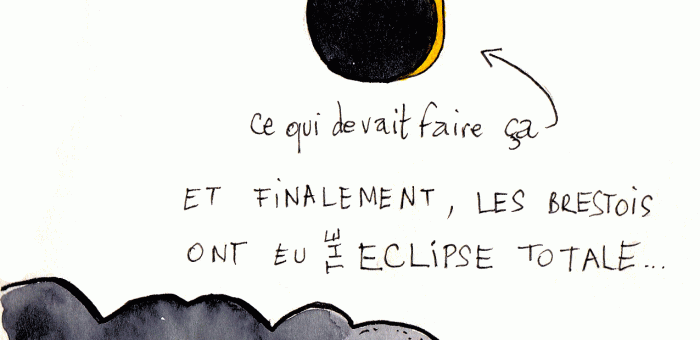 ce qui devait faire ça
ET FINALEMENT, LES BRESTOIS
ONT EU THE ECLIPSE TOTALE...